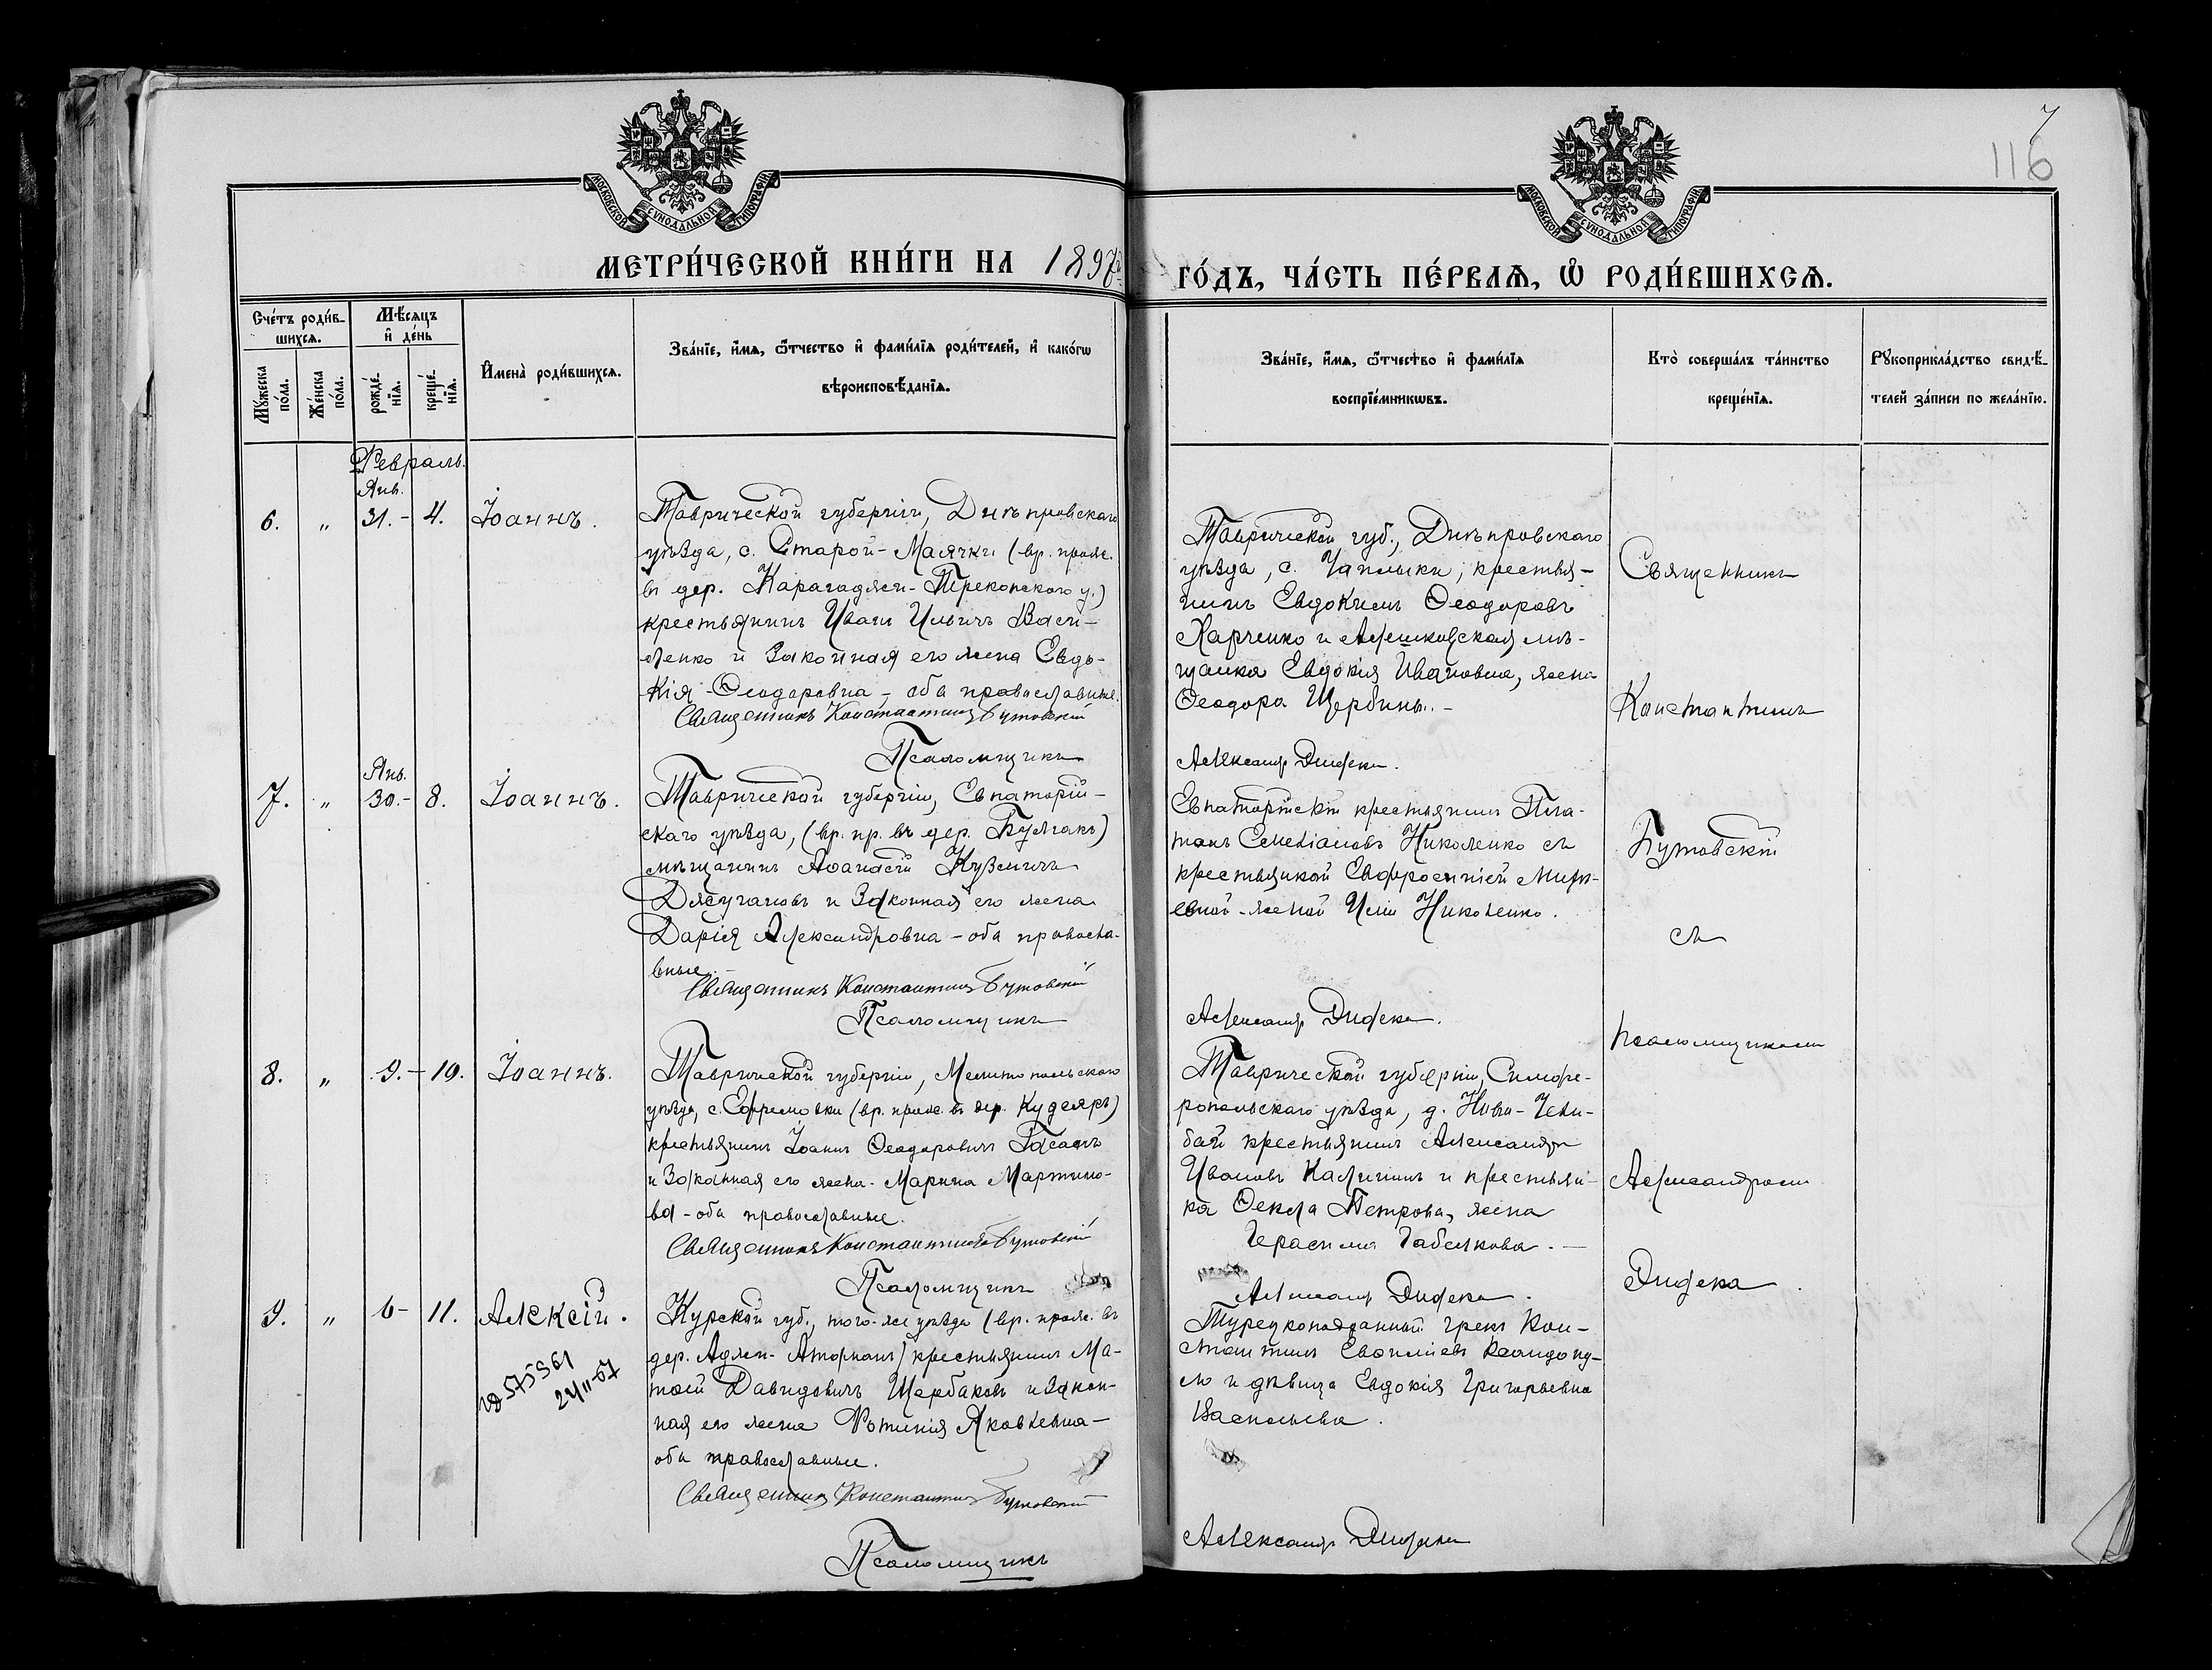 7
116
МОСКОВСКОЙ СѴНОДАЛЬНОЙ ТИПОГРАФІИ
МОСКОВСКОЙ СѴНОДАЛЬНОЙ ТИПОГРАФІИ
МЕТРИ́ЧЕСКОЙ КНИ́ГИ НА 1897й
ГО́ДЪ, ЧА́СТЬ ПЕ́РВАѦ, Ѡ҆ РОДИ́ВШИХСѦ.
Сче́тъ роди́в-
шихсѧ.
Мѣ́сѧцъ
и҆ де́нь
Мꙋ́жеска
по́ла.
Же́нска
по́ла.
рожде́-
нїѧ.
креще́-
нїѧ.
И҆мена̀ роди́вшихсѧ.
Зва́нїе, и҆́мѧ, ѻ҆́тчество и҆ фами́лїѧ роди́телей, и҆ како́гѡ
вѣроисповѣ́данїѧ.
Зва́нїе, и҆́мѧ, ѻ҆́тчество и҆ фами́лїѧ
воспрїе́мникѡвъ.
Кто̀ соверша́лъ та́инство
креще́нїѧ.
Рꙋкоприкла́дство свидѣ́-
телей за́писи по жела́нїю.
Февраль.
Янв.
6. " 31.- 4. Іоаннъ.
Таврической губерніи, Днѣпровскаго
уѣзда, с. Старой-Маячки (вр. прож.
въ дер. Карагаджи-Перекопскаго у.)
крестьянинъ Иванъ Ильичъ Васи-
ленко и законная его жена Евдо-
кія Ѳеодоровна - оба православные.
Священникъ Константинъ Бутовскій
Псаломщикъ
Таврической губ., Днѣпровскаго
уѣзда, с. Чаплыки, крестья-
нинъ Евдокимъ Ѳеодоровъ
Харченко и Алешковская мѣ-
щанка Евдокія Ивановна, жена
Ѳеодора Щербины.-
Александр Дидека.
Янв.
7. " 30.- 8. Іоаннъ.
Таврической губерніи, Евпаторій-
скаго уѣзда, (вр. пр. въ дер. Булганъ)
мѣщанинъ Аѳанасій Кузьмичъ
и законная его жена
Дарія Александровна - оба правосла-
вные.-
Священникъ Константинъ Бутовскій
Псаломщикъ
Евпаторійскій крестьянинъ Пла-
тонъ Николенко съ
крестьянкой Евфросиніей
евной-женой Николенко.
Александр Дидека.
8. " 9.- 10. Іоаннъ.
Таврической губерніи, Мелитопольскаго
уѣзда, с. Ефремовки (вр. прож. въ дер. Кудеяръ)
крестьянинъ Іоаннъ Ѳеодоровичъ
и законная его жена - Марина Мартино-
ва - оба православные.
Священникъ Константинъ Бутовскій
Псаломщикъ
Таврической губерніи, Симфе-
ропольскаго уѣзда, д. Ново-
крестьянинъ Александръ
Ивановъ Калининъ и крестьян-
ка Ѳекла Петрова, жена
Герасима
Александр Дидека.
9. " 6- 11. Алексій.
Курской губ., того-же уѣзда (вр. прож. въ
дер. Аджи-Атманъ) крестьянинъ Ма-
тѳей Давидовичъ Щербаковъ и закон-
ная его жена Фотинія Яковлевна-
оба православные.
Священникъ Константинъ Бутовскій
Псаломщикъ
575561
Турецкоподданный грекъ Кон-
стантинъ
и дѣвица Евдокія Григорьевна
Васильева.
Александр Дидека
Священникъ
Константинъ
Бутовскій
съ
псаломщикомъ
Александромъ
Дидека